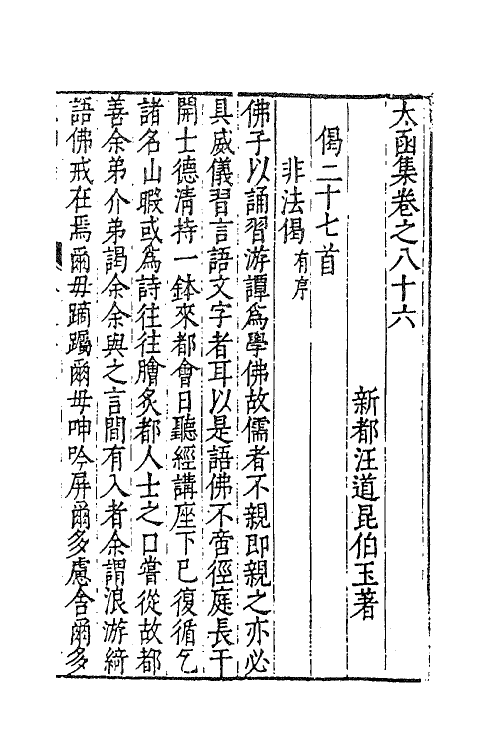 太函集卷之八十六
新都汪道昆伯玉著
偈二十七首
非法偈有序
佛子以誦習游譚爲學佛故儒者不親即親之亦必
具威儀習言語文字者耳以是語佛不啻徑庭長干
開士德清持一鉢來都會日聽經講座下已復循乞
諸名山暇或爲詩往往膾炙都人士之口嘗從故都
善余弟介弟謁余余與之言間有入者余謂浪游綺
語佛戒在焉爾毋蹢躅爾毋呻吟屏爾多慮舍爾多